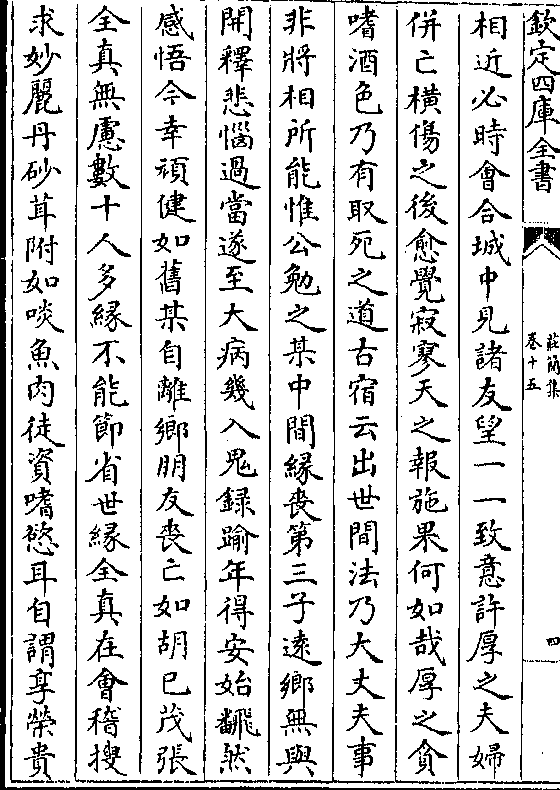 欽定四庫全書
莊簡集
卷十五
四
相近必時會合城中見諸友望一一致意許厚之夫婦
併亡橫傷之後愈覺寂寥天之報施果何如哉厚之貪
嗜酒色乃有取死之道古宿云出世間法乃大丈夫事
非將相所能惟公勉之某中間緣喪第三子逺鄉無與
開釋悲惱過當遂至大病幾入鬼録踰年得安始飜然
感悟今幸頑健如舊某自離鄉朋友喪亡如胡已茂張
全真無慮數十人多緣不能節省世緣全真在會稽搜
求妙麗丹砂茸附如啖魚肉徒資嗜慾耳自謂享榮貴